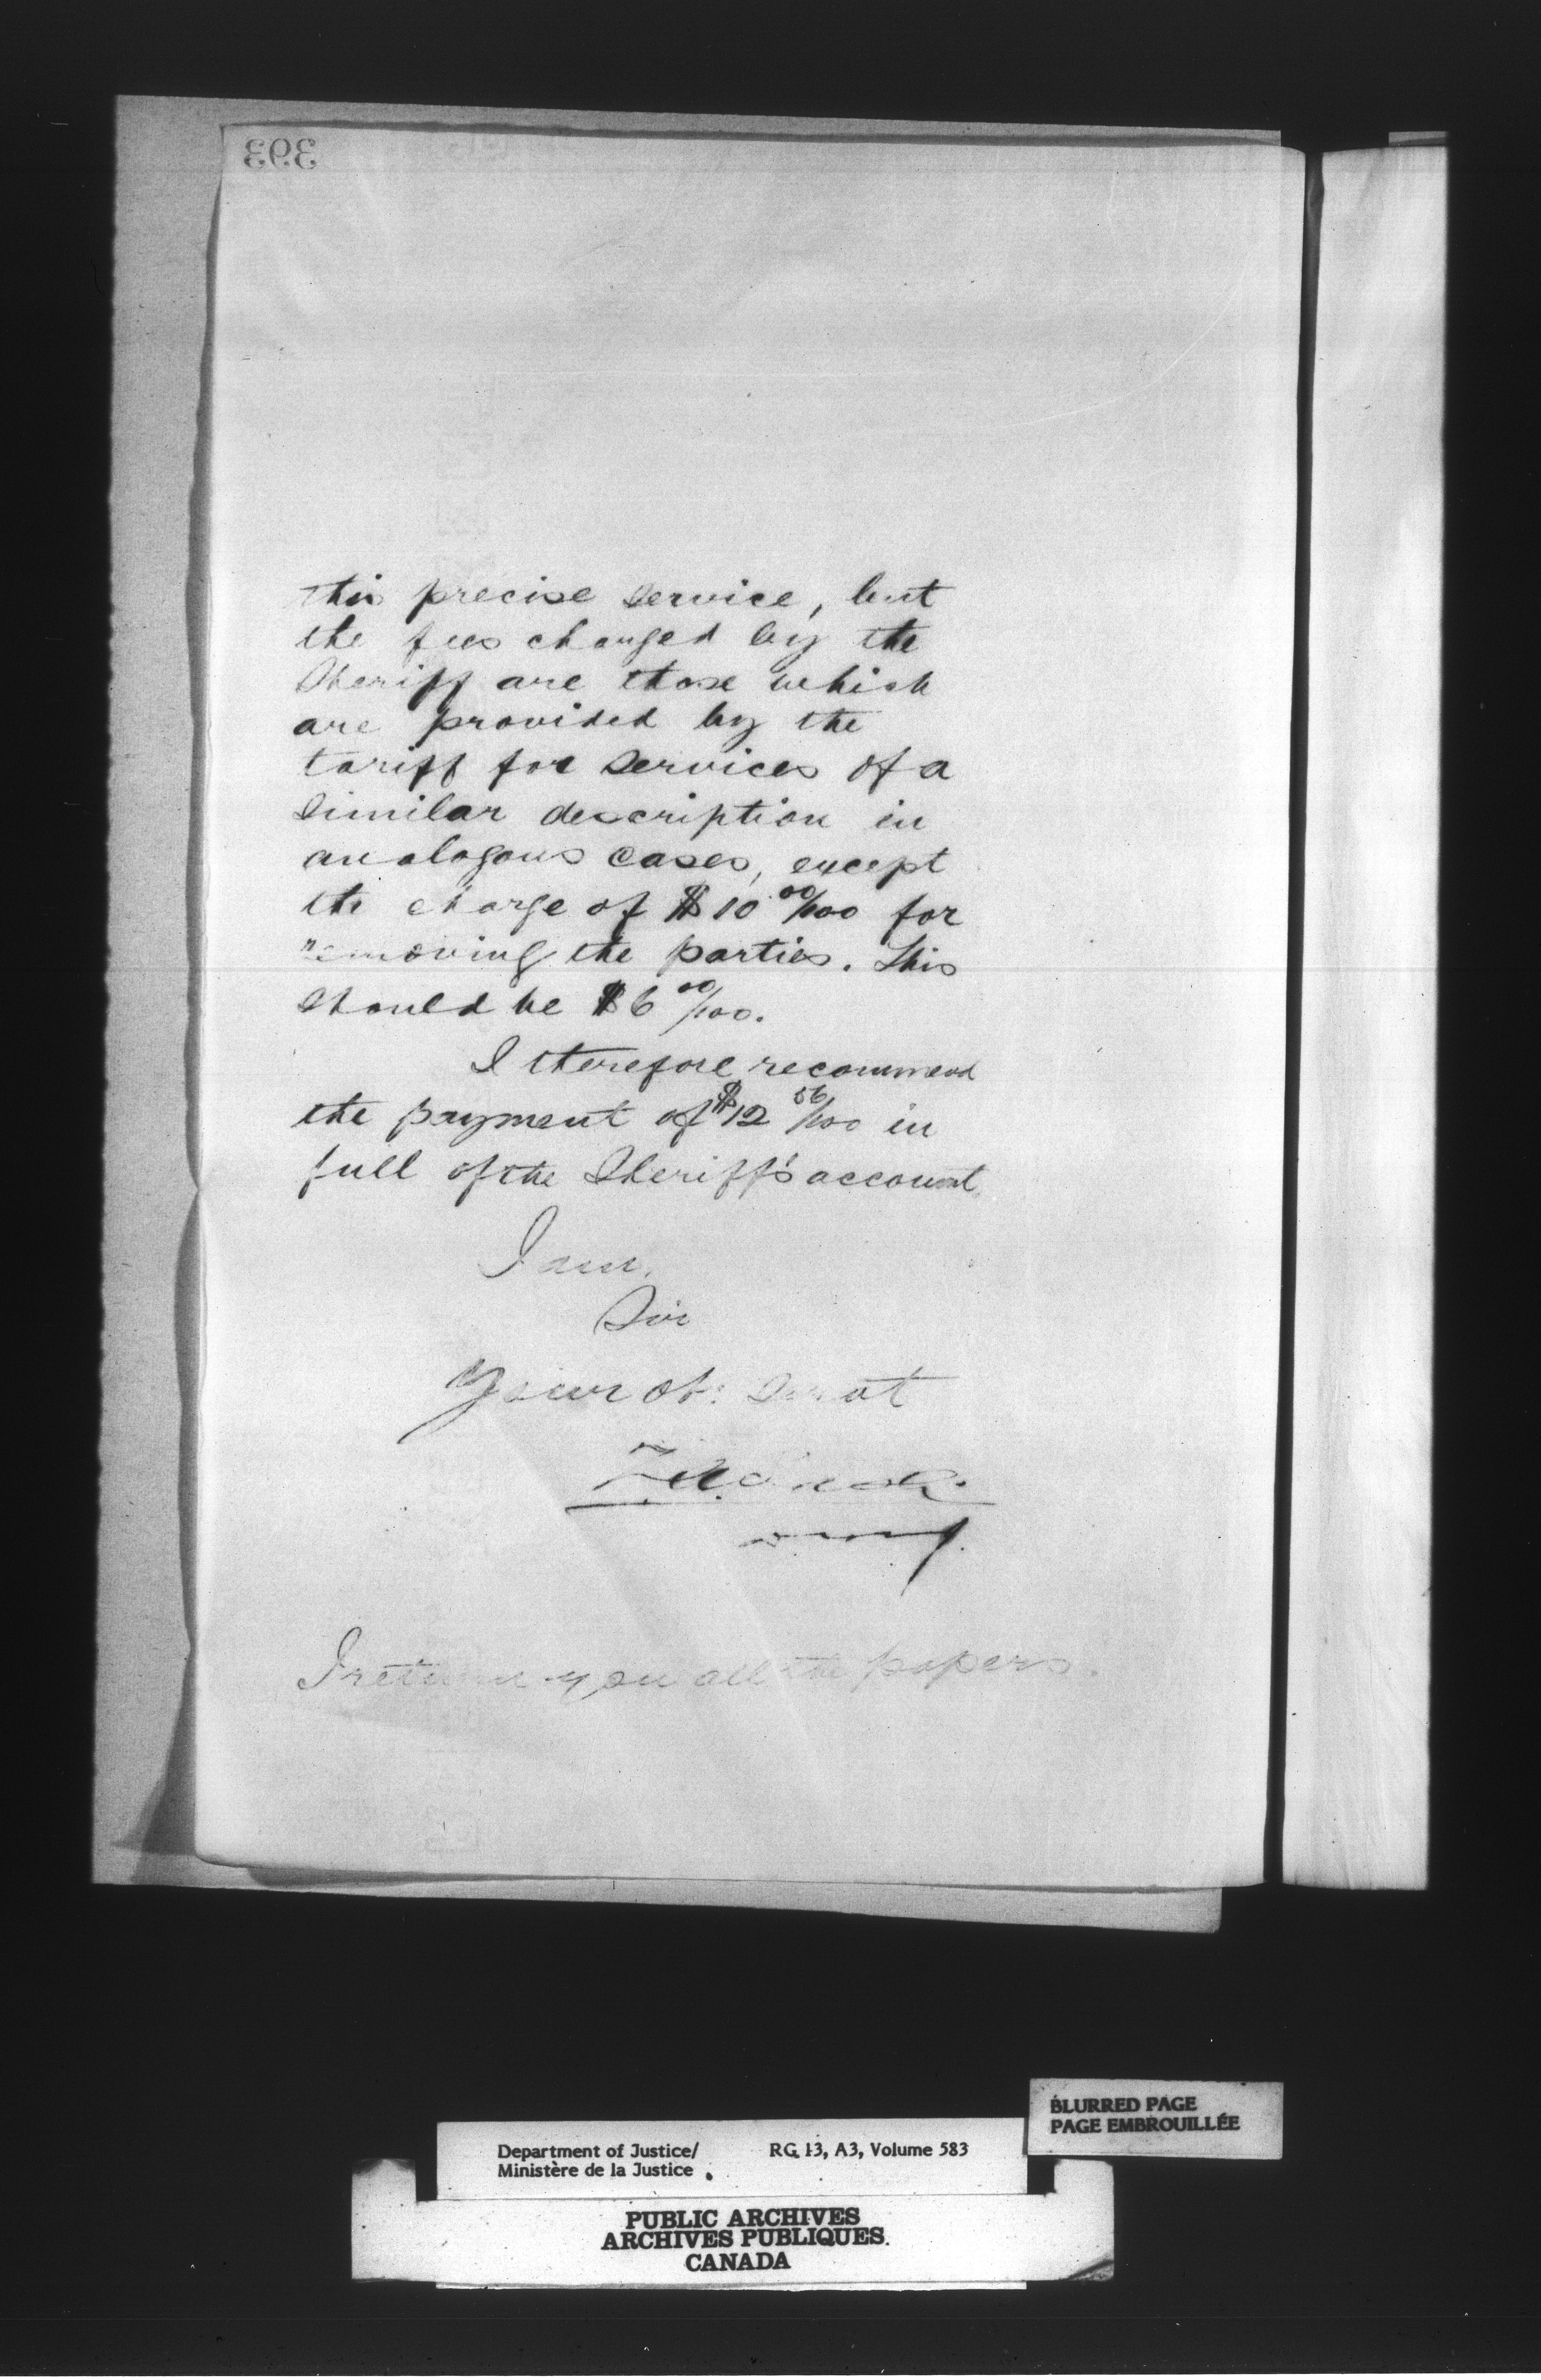 393
this precise service, but
the fees charged by the
Sheriff are those which
are provided by the
tariff for services of a
similar description in
analogous cases, except
the charge of $10 00/100 for
removing the parties. This
should be $6 00/100.
I therefore recommend
the payment of $12 56/100 in
full of the Sheriff's account
I am,
Sir
Your ob: servt
I return you all the papers.
BLURRED PAGE
PAGE EMBROUILLÉE
Department of Justice/ RG 13, A3, Volume 583
Ministère de la Justice
PUBLIC ARCHIVES
ARCHIVES PUBLIQUES
CANADA